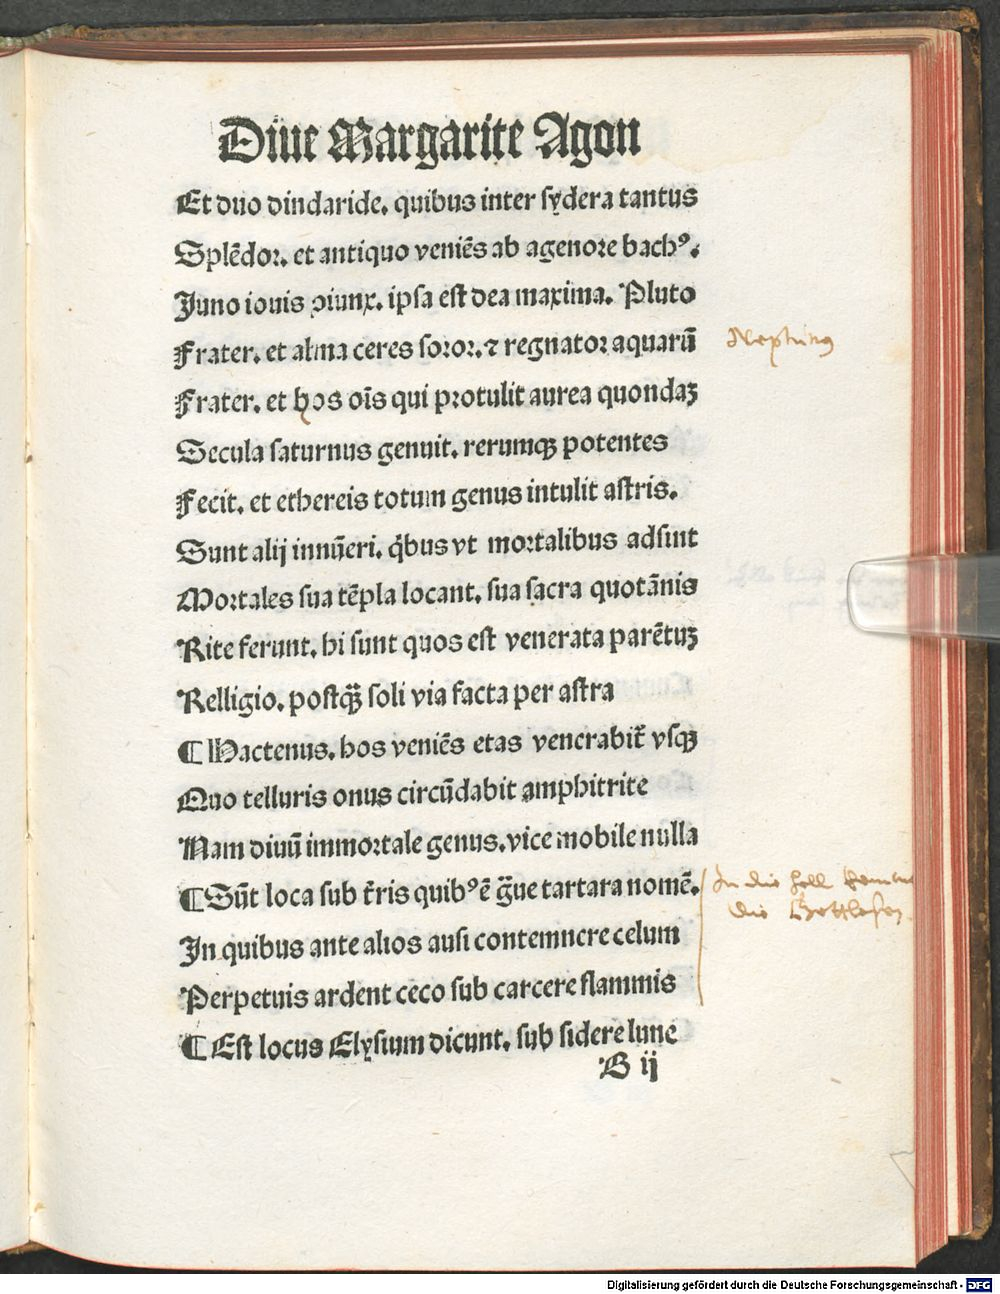 Diue Margarite Agon
Et duo dindaride. quibus inter sydera tantus
Splēdor. et antiquo veniēs ab agenore bachꝰ.
Juno iouis piunx. ipsa est dea maxima. Pluto
Frater. et alma ceres soror. ⁊ regnator aquarū
Neptunus
Frater. et hos oīs qui protulit aurea quondaꝫ
Secula saturnus genuit. rerumqꝫ potentes
Fecit. et ethereis totum genus intulit astris.
Sunt alij innūeri. q̇bus vt mortalibus adsint
Mortales sua tēpla locant. sua sacra quotānis
Rite ferunt. hi sunt quos est venerata parētuꝫ
Relligio. postqꝫ̄ soli via facta per astra
¶ Hactenus. hos veniēs etas venerabit̄ vsqꝫ
Quo telluris onus circūdabit amphitrite
Nam diuū immortale genus. vice mobile nulla
¶ Sūt loca sub t̄ris quibꝰ ē g̈ue tartara nomē.
In die hell komen
die Gottlosen.
In quibus ante alios ausi contemnere celum
Perpetuis ardent ceco sub carcere flammis
¶ Est locus Elysium dicunt. sub sidere lune
B ij
Digitalisierung gefördert durch die Deutsche Forschungsgemeinschaft - DFG